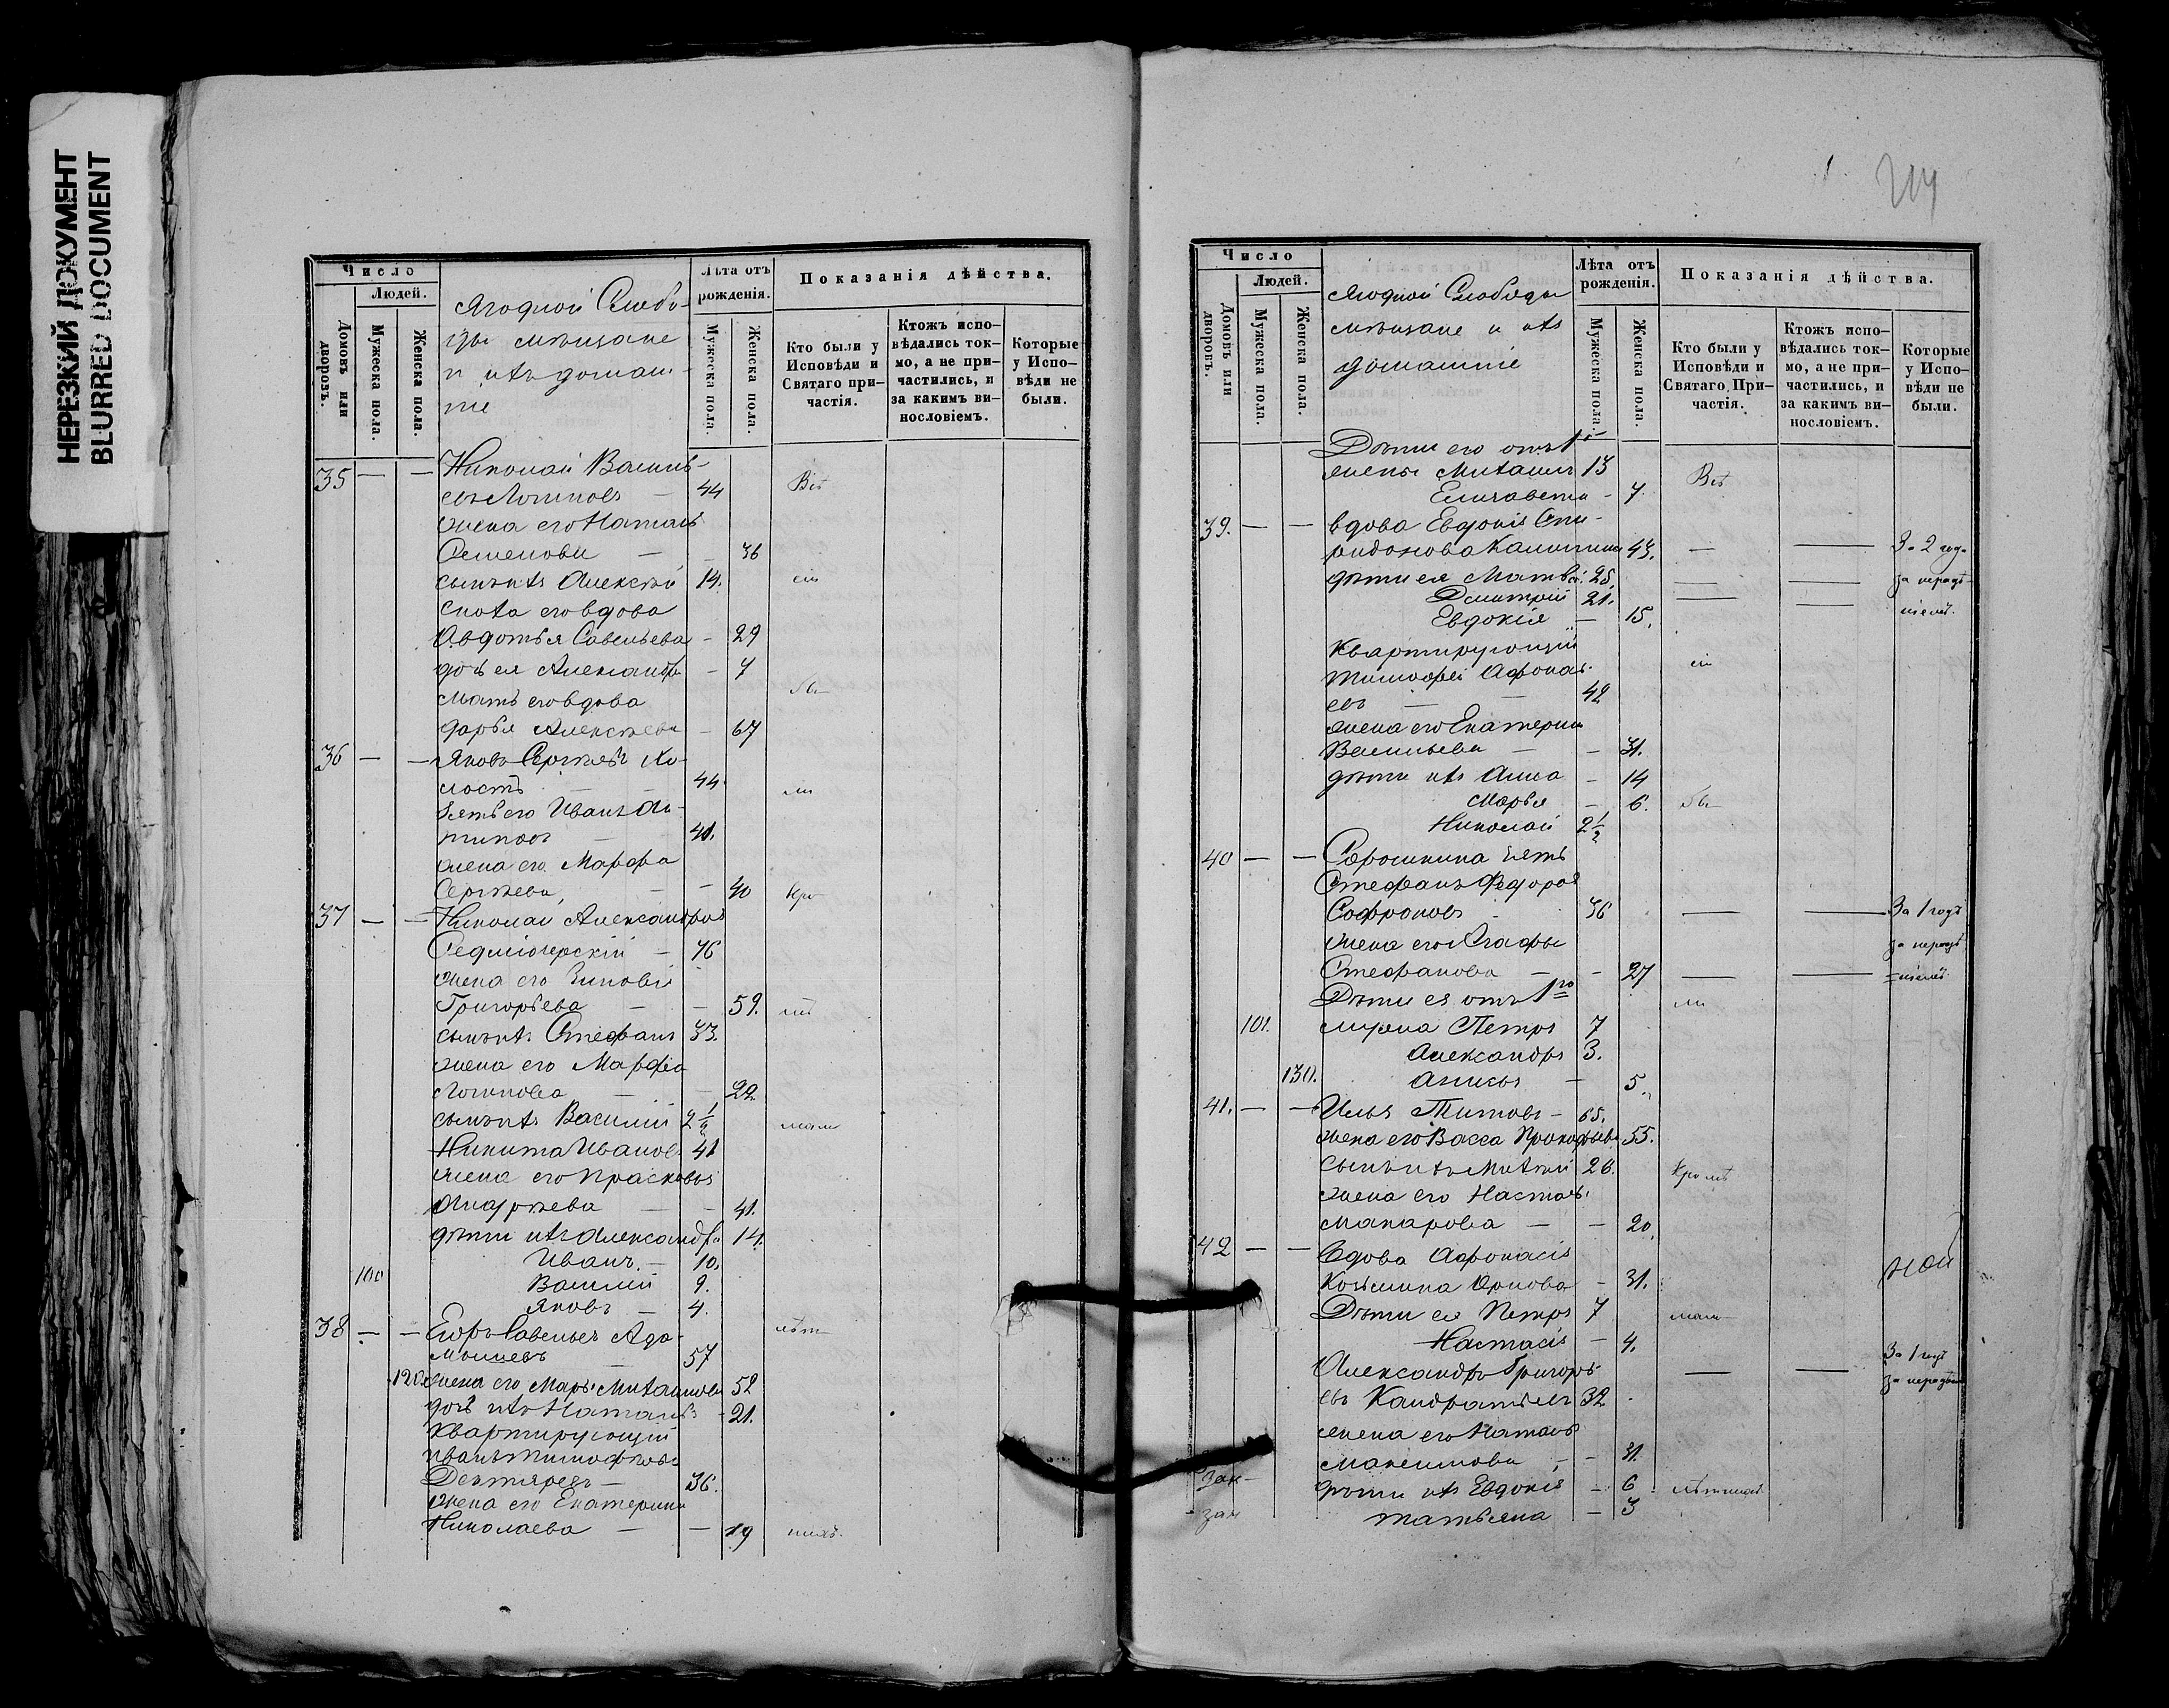 НЕРЕЗКИЙ ДОКУМЕНТ
BLURRED DOCUMENT
Число
Людей.
Домовъ или дворовъ.
Мужеска пола.
Женска пола.
Ягодной Слобо-
ды мѣщане
и ихъ домаш-
ніе
Лѣта отъ рожденія.
Мужеска пола.
Женска пола.
Показанія дѣйства.
Кто были у Исповѣди и Святаго причастія.
Ктожъ исповѣдались токмо, а не причастились, и за какимъ винословіемъ.
Которые у Исповѣди не были.
35 — — Николай Василь-
евъ Логиновъ — 44 Всѣ
жена его Наталья
Семенова — — 36
сынъ ихъ Алексѣй 14.
сноха его вдова
Авдотья Савельева — 29
дочь ея Александра — 7
мать его вдова
Дарья Алексѣева — 67
36 — — Яковъ Сергѣевъ Хо-
лостъ — — 44
Зять его Иванъ Ан-
типовъ — 41.
жена его Марфа
Сергѣева, — — 40 Кро
37 — — Николай Александровъ
Седміозерскій — 76
жена его Зиновія
Григорьева — — 59.
сынъ ихъ Стефанъ 33.
жена его Марфа
Логинова — — 22
сынъ ихъ Василій 2 1/2 мало
Никита Ивановъ 41
жена его Прасковья
Андреева — — 41.
дѣти ихъ Александръ 14.
Иванъ. — 10.
100 Василій 9.
Яковъ — 4.
38 — — Егоръ Савельевъ Ада- лѣт
мышевъ — 57
120. жена его Марья Михайлова 52
дочь ихъ Наталья — 21.
Квартирующій
Иванъ Тимофѣевъ
Дектяревъ — 36.
жена его Екатерина
Николаева — — 19
214
Число
Людей.
Домовъ или дворовъ.
Мужеска пола.
Женска пола.
Ягодной Слободы
мѣщане и ихъ
домашніе
Лѣта отъ рожденія.
Мужеска пола.
Женска пола.
Показанія дѣйства.
Кто были у Исповѣди и Святаго Причастія.
Ктожъ исповѣдались токмо, а не причастились, и за какимъ винословіемъ.
Которые у Исповѣди не были.
Дѣти его отъ 1й
жены Михаилъ 13 Всѣ
Елизавета — 7.
39. — — Вдова Евдокія Спи-
ридонова Калинина 43. — — За 2 года
дѣти ея Матвѣй 25. — — за нерадѣ-
Дмитрій 21. — — ніемъ.
Евдокія — 15.
Квартирующій
Тимофей Афонась-
евъ — — 42
жена его Екатерина
Васильева — — 31.
дѣти ихъ Анна — 14
Марья — 6. бы
Николай 2 1/2
40 — — Сорошкина зять
Стефанъ Федоровъ
Софроновъ 36 — — За 1 годъ
жена его Агафья за нерадѣ
Стефанова — — 27 — — ніемъ
Дѣти ея отъ 1го ли
101. мужа Петръ 7
Александръ 3.
130. Анисья — 5.
41. — — Илья Титовъ — 65.
жена его Васса Прокофьева 55.
сынъ ихъ Михаилъ 26. Кромѣ
жена его Настась
Макарова — — 20.
42 — — Вдова Афонасія
Козьмина Орлова — 31.
Дѣти ея Петръ 7 мало
Настасія — 4.
Александръ Григорь- — — За 1 годъ
евъ Кандратьевъ 32 за нерадѣн
жена его Наталья
Максимова — — 31.
дѣти ихъ Евдокія — 6 лѣтнихъ
Татьяна — 3